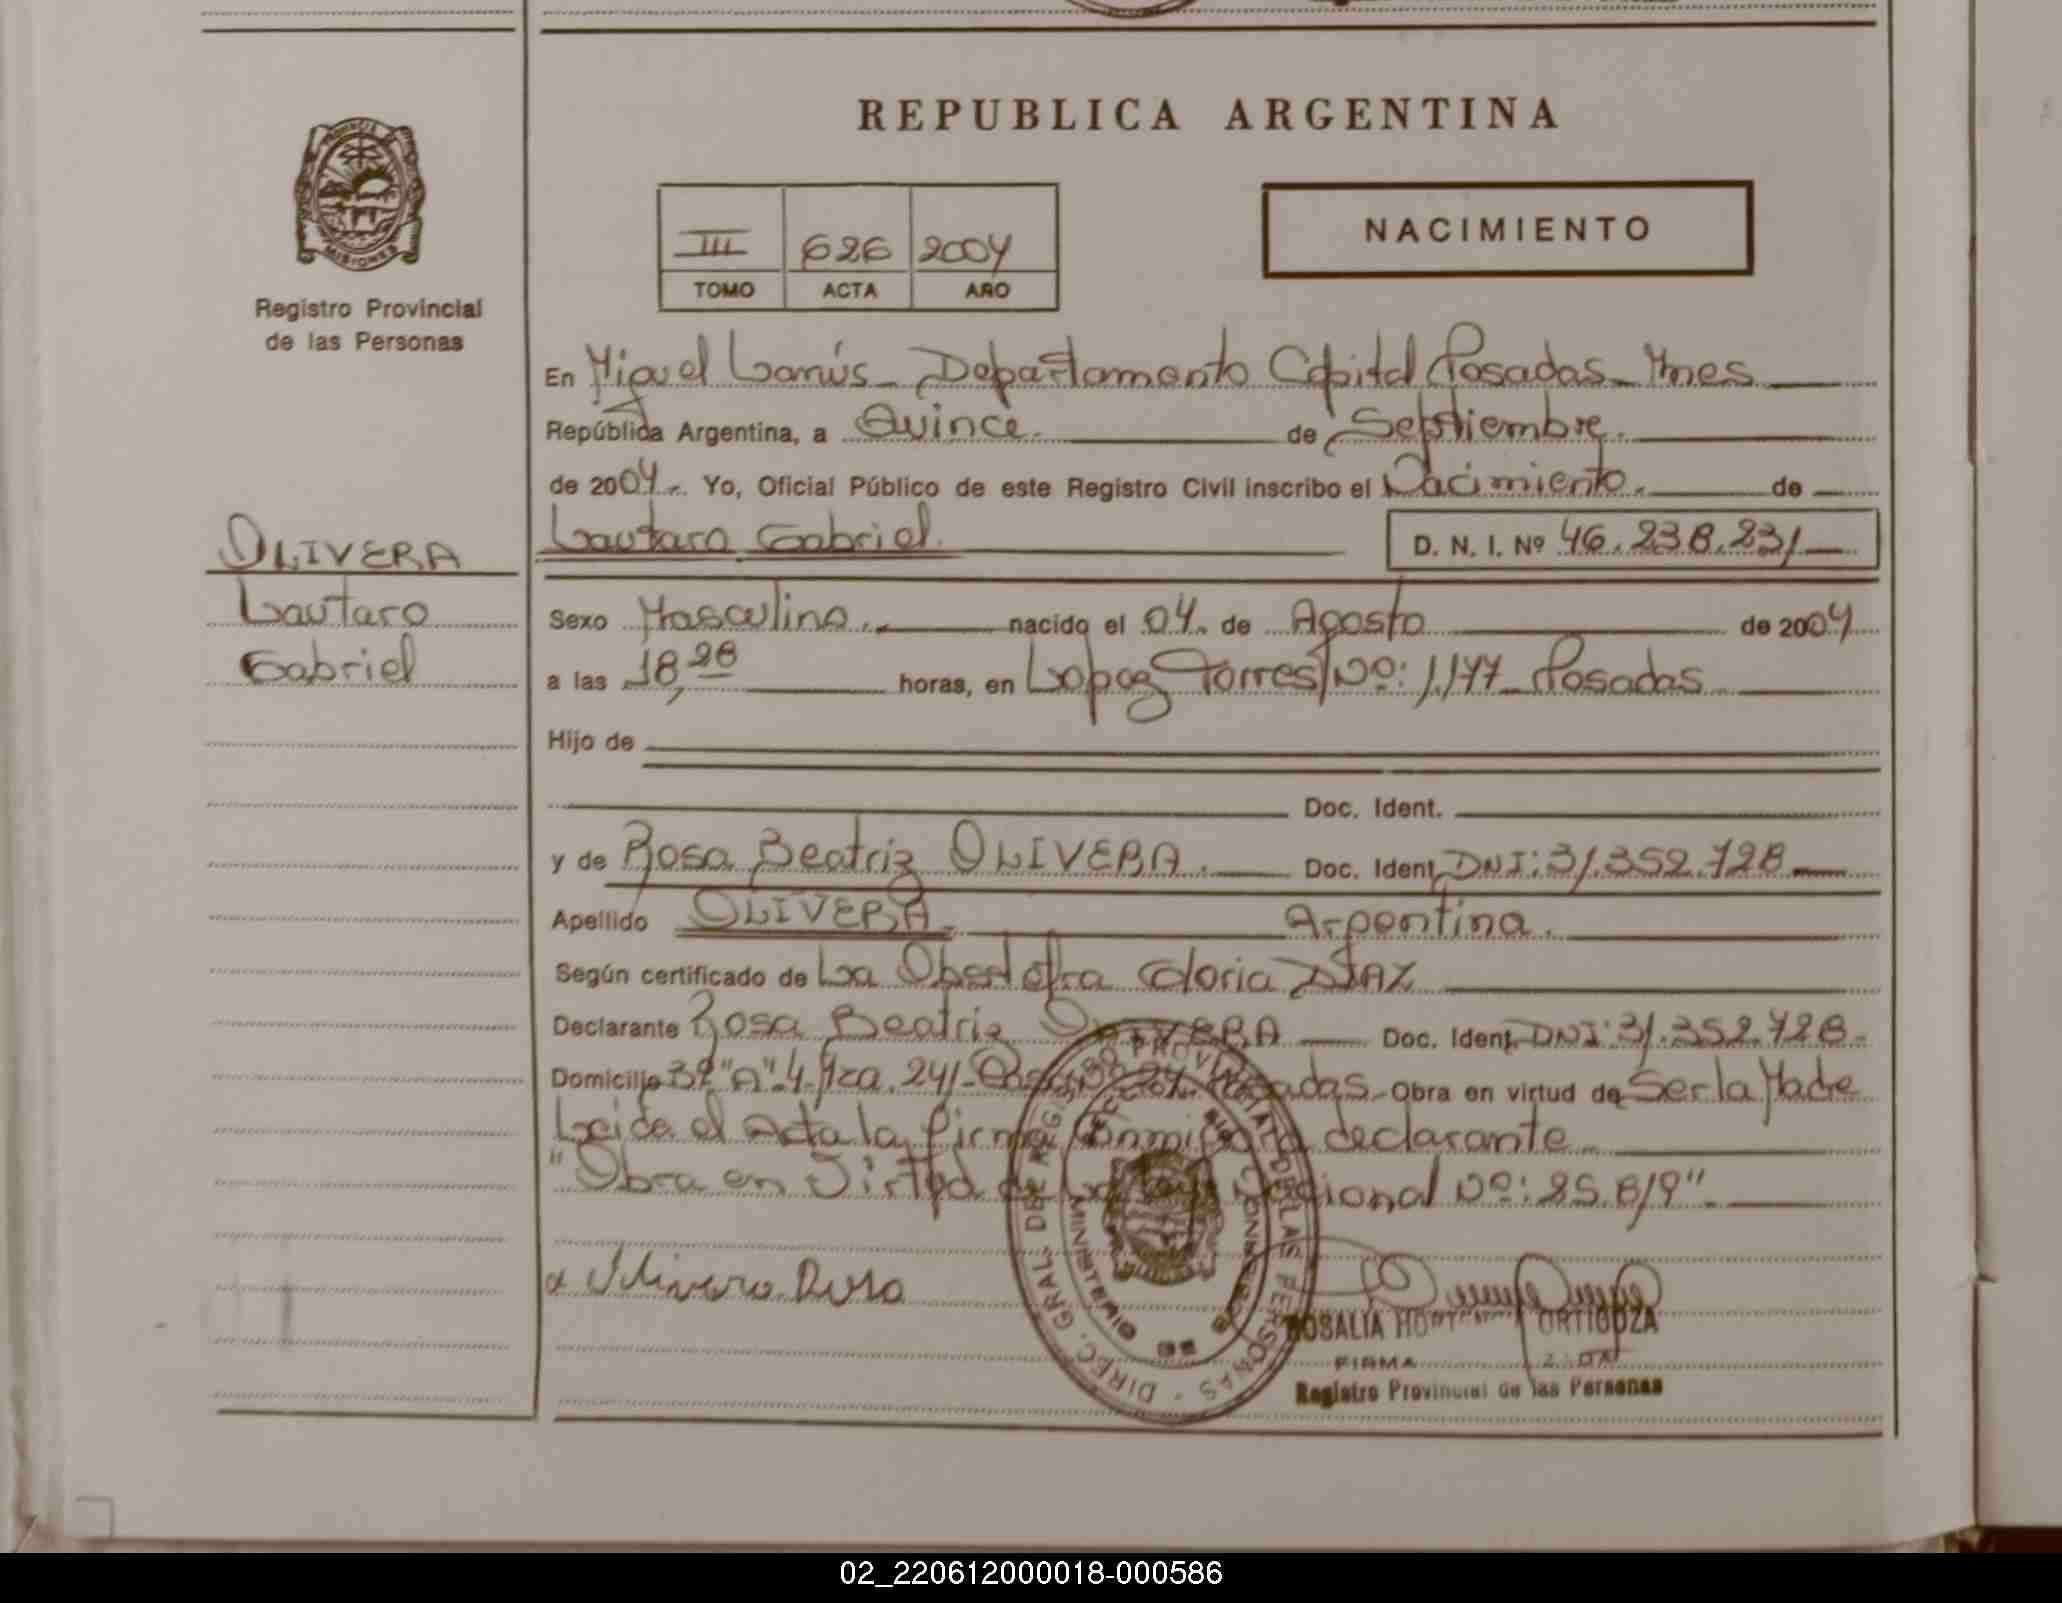 REPUBLICA ARGENTINA
MISIONES
Registro Provincial
de las Personas
III 626 2004
TOMO ACTA AÑO
NACIMIENTO
En Miguel Lanús - Departamento Capital Posadas - Mnes
República Argentina, a Quince de Septiembre.
de 2004. Yo, Oficial Público de este Registro Civil inscribo el Nacimiento. de
OLIVERA
Lautaro
Gabriel
Lautaro Gabriel. D. N. I. Nº 46.238.231
Sexo Masculino. nacido el 04. de Agosto de 2004
a las 18,28 horas, en Lopez Torres Nº: 1.177 - Posadas
Hijo de
Doc. Ident.
y de Rosa Beatriz OLIVERA. Doc. Ident. DNI: 31.352.728
Apellido OLIVERA. Argentina.
Según certificado de La Obstetra Gloria DIAZ
Declarante Rosa Beatriz OLIVERA Doc. Ident. DNI: 31.352.728.
Domicilio "A" 4. Mza. 241- Posadas. Obra en virtud de Ser la Madre
Leida el Acta la firma Conmigo la declarante
"Obra en Virtud de La Ley Nacional Nº: 25.819".
Olivera Rosa
DIREC. GRAL. DE REGISTRO PROVINCIAL DE LAS PERSONAS
ROSALIA ORTIGOZA
FIRMA
Registro Provincial de las Personas
02_220612000018-000586